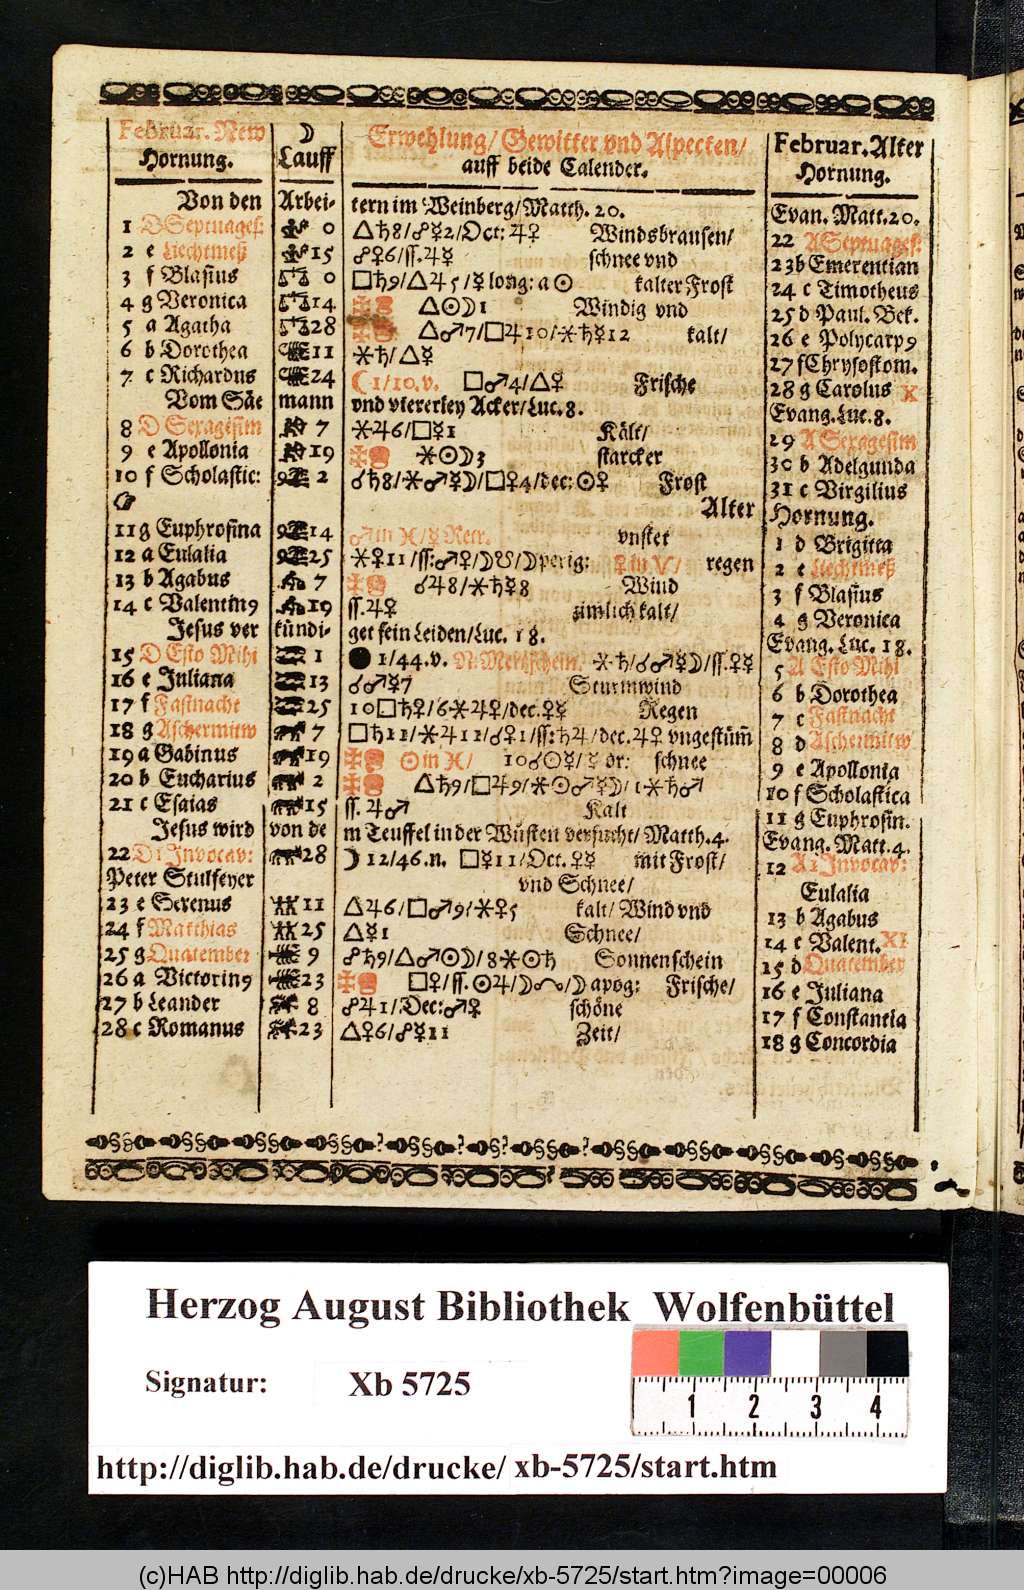 Februar. New ☽ Erwehlung/ Gewitter vnd Aspecten/ Februar. Alter
Hornung. Lauff auff beide Calender. Hornung.
Von den Arbei- tern im Weinberg/ Matth. 20. Evan. Matt. 20.
1 D Septuages: 0 △♄8/☍☿2/Oct: ♃♀ Windsbrausen/ 22 A Septuages:
2 e Liechtmeß 15 ☍♀6/ſſ.♃☿ schnee vnd 23 b Emerentian
3 f Blasius ♎ 0 □♄9/△♃5/☿ long: a ☉ kalter Frost 24 c Timotheus
4 g Veronica ♎ 14 △☉☽1 Windig vnd 25 d Paul. Bek.
5 a Agatha ♎ 28 △♂7/□♃10/⚹♄☿12 kalt/ 26 e Polycarp9
6 b Dorothea 11 ⚹♄/△☿ 27 f Chrysostom.
7 c Richardus 24 ☾ 1/10.v. □♂4/△♀ Frische 28 g Carolus X
Vom Säe mann vnd viererley Acker/ Luc. 8. Evang. Luc. 8.
8 D Sexagesim 7 ⚹♃6/□☿1 Kält/ 29 A Sexagesim
9 e Apollonia 19 ⚹☉☽3 starcker 30 b Adelgunda
10 f Scholastic: 2 ☌♄8/⚹♂☿☽/□♀4/dec: ☉♀ Frost 31 c Virgilius
☞ Alter Hornung.
11 g Euphrosina 14 ♂ in ♓/☿ Retr. vnstet 1 d Brigitta
12 a Eulalia 25 ⚹♀11/ſſ:♂♀/☽☋/☽ perig: ♀ in ♈/ regen 2 e Liechtmeß
13 b Agabus 7 ☌♃8/⚹♄☿8 Wind 3 f Blasius
14 c Valentin9 19 ſſ.♃♀ zimlich kalt/ 4 g Veronica
Jesus ver kündi- get sein Leiden/ Luc. 18. Evang. Luc. 18.
15 D Esto Mihi 1 ● 1/44.v. N. Mertzschein. ⚹♄/☌♂☿☽/ſſ.♀☿ 5 A Esto Mihi
16 e Juliana 13 ☌♂☿7 Sturmwind 6 b Dorothea
17 f Fastnacht 25 10□♄♀/6⚹♃♀/dec.♀☿ Regen 7 c Fastnacht
18 g Aschermitw 7 □♄11/⚹♃11/☌♀1/ſſ:♄♃/dec.♃♀ vngestüm̃ 8 d Aschermitw
19 a Gabinus 19 ☉ in ♓/ 10☌☉☿/☿ or: schnee 9 e Apollonia
20 b Eucharius 2 △♄9/□♃9/⚹☉♂☿☽/1⚹♄♂ 10 f Scholastica
21 c Esaias 15 ſſ.♃♂ Kalt 11 g Euphrosin.
Jesus wird von de m Teuffel in der Wüsten versucht/ Matth. 4. Evang. Matt. 4.
22 D 1 Invocav: 28 ☽ 12/46.n. □☿11/Oct.♀☿ mit Frost/ 12 A 1 Invocav:
Peter Stulfeyer vnd Schnee/ Eulalia
23 e Serenus 11 △♃6/□♂9/⚹♀5 kalt/ Wind vnd 13 b Agabus
24 f Matthias 25 △☿1 Schnee/ 14 c Valent. XI
25 g Quatember 9 ☍♄9/△♂☉☽/8⚹☉♄ Sonnenschein 15 d Quatember
26 a Victorin9 23 □♀/ſſ.☉♃/☽☊/☽ apog: Frische/ 16 e Juliana
27 b Leander 8 ☍♃1/Dec:♂♀ schöne 17 f Constantia
28 c Romanus 23 △♀6/☍☿11 Zeit/ 18 g Concordia
Herzog August Bibliothek Wolfenbüttel
Signatur: Xb 5725
1 2 3 4
http://diglib.hab.de/drucke/ xb-5725/start.htm
(c)HAB http://diglib.hab.de/drucke/xb-5725/start.htm?image=00006